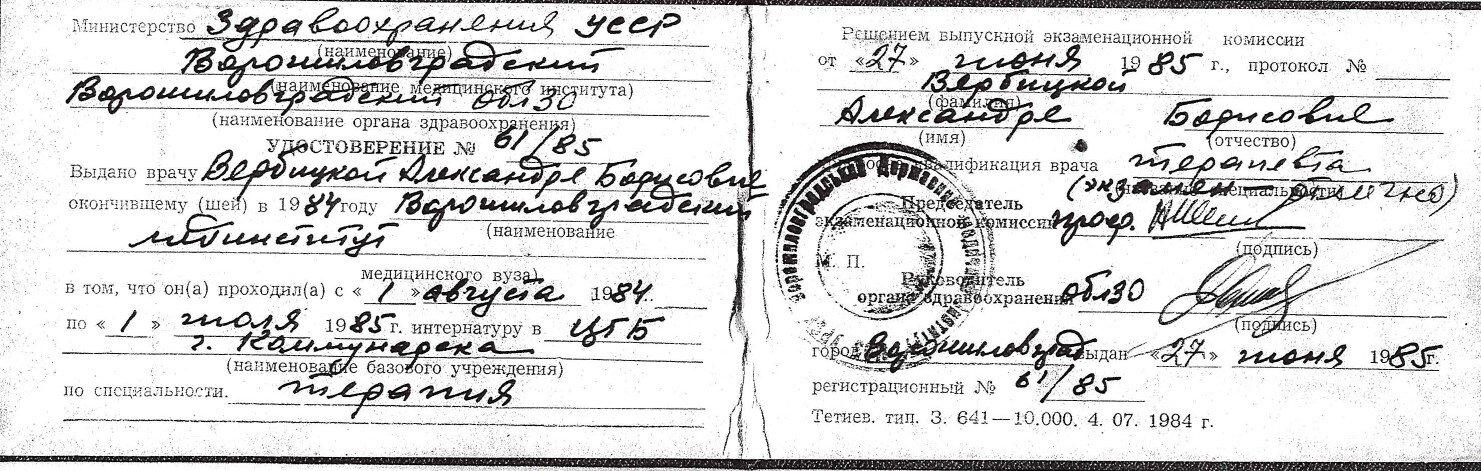 Министерство Здравоохранения УССР
(наименование)
Ворошиловградский
(наименование медицинского института)
Ворошиловградский облЗО
(наименование органа здравоохранения)
УДОСТОВЕРЕНИЕ № 61/85
Выдано врачу Вербицкой Александре Борисовне
окончившему (шей) в 1984 году Ворошиловградский
мединститут (наименование
медицинского вуза)
в том, что он(а) проходил(а) с «1» августа 1984..
по «1» июля 1985 г. интернатуру в ЦГБ
г. Коммунарска
(наименование базового учреждения)
по специальности. терапия
Решением выпускной экзаменационной комиссии
от «27» июня 1985 г., протокол №
Вербицкой
(фамилия)
Александре Борисовне
(имя) (отчество)
квалификация врача терапевта
(экзамен отлично)
Председатель
экзаменационной комиссии проф.
(подпись)
М. П.
Руководитель
органа здравоохранения облЗО
(подпись)
город Ворошиловград выдан «27» июня 1985 г.
регистрационный № 61/85
Тетиев. тип. З. 641—10.000. 4. 07. 1984 г.